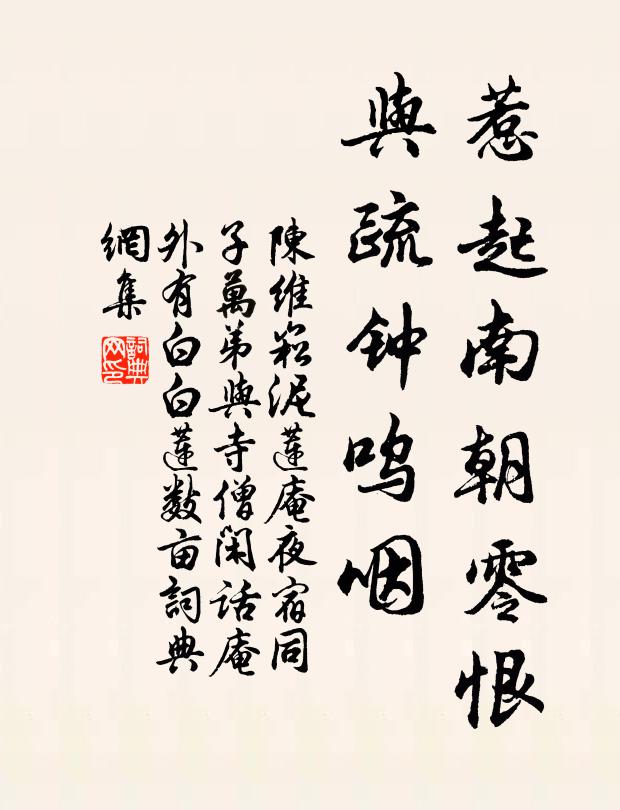 惹起南朝零恨
與疏钟鸣咽
陳維崧泥蓮庵夜宿同
子萬弟與寺僧閑話庵
外有白白蓮數亩詞典
網集
詞典网印